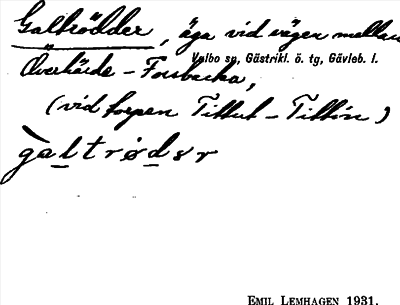 Galtrödder, äga vid vägen mellan
Valbo sn, Gästrikl. ö. tg, Gävleb. l.
Överhärde - Forsbacka,
(vid torpen Tittut - Tittin)
g a l t r ø d s r
EMIL LEMHAGEN 1931.